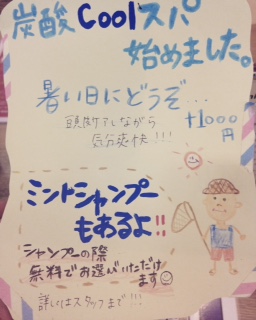 炭酸Coolスパ
始めました。
暑い日にどうぞ...
頭皮クレしながら
気分爽快!!!
+1000円
ミントシャンプー
もあるよ!!
シャンプーの際
無料でお選びいただけ
ます
詳しくはスタッフまで!!!